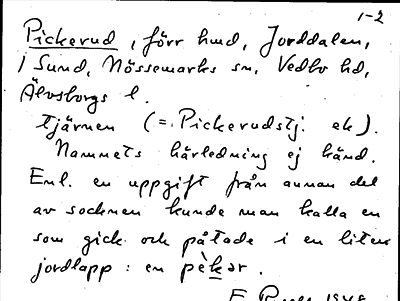 1-2
Pickerud, förr hmd, Jorddalen,
i Sund, Nössemarks sn, Vedbo hd,
Älvsborgs l.
tjärnen (=. Pickerudstj. ek).
Namnets härledning ej känd.
Enl. en uppgift från annan del
av socknen kunde man kalla en
som gick och påtade i en liten
jordlapp : en pèkər.